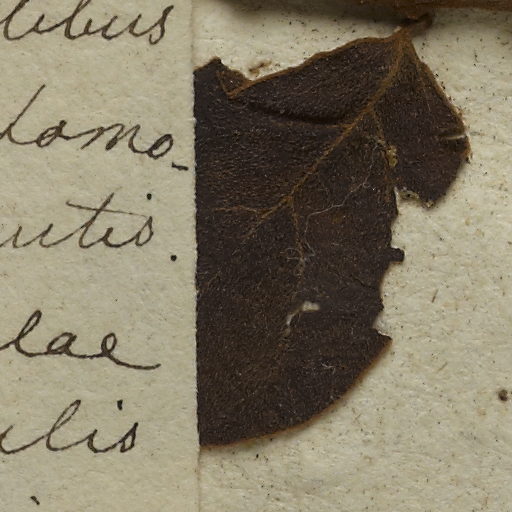 libus
lamo-
utis.
lae
ilis